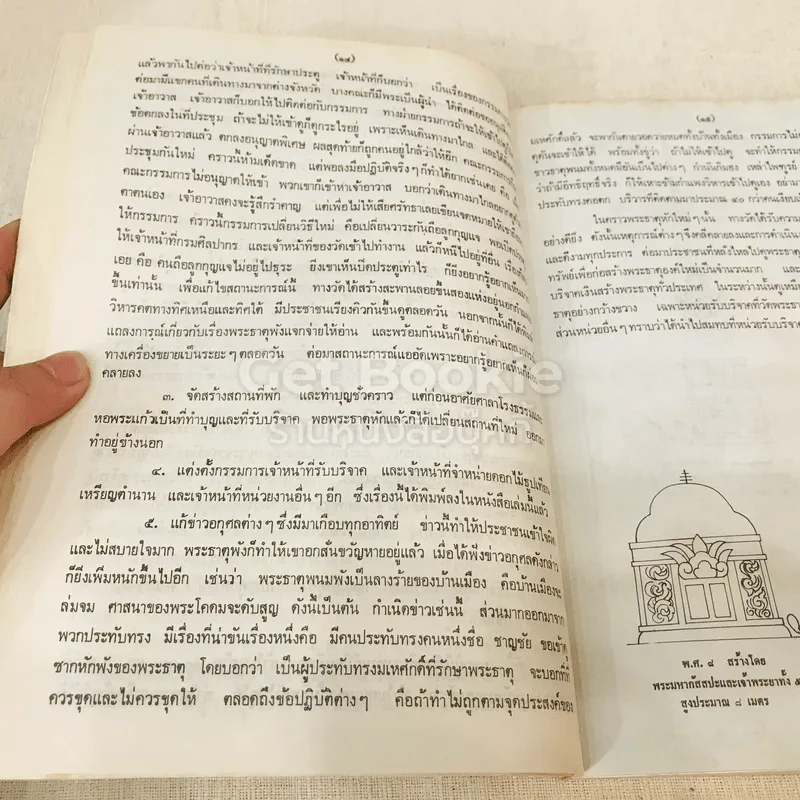 (๑๔)
แล้วพากันไปต่อว่าเจ้าหน้าที่ที่รักษาประตู เจ้าหน้าที่ก็บอกว่า เป็นเรื่องของกรรมการ
ต่อมามีแขกคนที่เดินทางมาจากต่างจังหวัด บางคณะก็มีพระเป็นผู้นำ ได้ติดต่อขออนุ
เจ้าอาวาส เจ้าอาวาสก็บอกให้ไปติดต่อกับกรรมการ ทางฝ่ายกรรมการถ้าจะให้เข้าไป
ข้อตกลงในที่ประชุม ถ้าจะไม่ให้เข้าดูก็ดูกระไรอยู่ เพราะเห็นเดินทางมาไกล และได้
ผ่านเจ้าอาวาสแล้ว ตกลงอนุญาตพิเศษ ผลสุดท้ายก็ถูกคนอยู่ใกล้ว่าให้อีก คณะกรรมการ
ประชุมกันใหม่ คราวนี้ห้ามเด็ดขาด แต่พอลงมือปฏิบัติจริง ๆ ก็ทำได้ยากเช่นเคย คือ
คณะกรรมการไม่อนุญาตให้เข้า พวกเขาก็เข้าหาเจ้าอาวาส บอกว่าเดินทางมาไกลอยากดู
ตาตนเอง เจ้าอาวาสคงจะรู้สึกรำคาญ แต่เพื่อไม่ให้เสียศรัทธาเลยเขียนจดหมายให้เขา
ให้กรรมการ คราวนี้กรรมการเปลี่ยนวิธีใหม่ คือเปลี่ยนวาระกันถือลูกกุญแจ พอเปิด
ให้เจ้าหน้าที่กรมศิลปากร และเจ้าหน้าที่ของวัดเข้าไปทำงาน แล้วก็หนีไปอยู่ที่อื่น เรื่อง
เอย คือ คนถือลูกกุญแจไม่อยู่ไปธุระ ยิ่งเขาเห็นปิดประตูเท่าไร ก็ยิ่งอยากรู้อยากเห็นมาก
ขึ้นเท่านั้น เพื่อแก้ไขสถานการณ์นี้ ทางวัดได้สร้างสะพานลอยขึ้นสองแห่งอยู่นอกกำแพง
วิหารคตทางทิศเหนือและทิศใต้ มีประชาชนเรียงคิวกันขึ้นดูตลอดวัน นอกจากนั้นก็ได้พิมพ์
แถลงการณ์เกี่ยวกับเรื่องพระธาตุพังแจกจ่ายให้อ่าน และพร้อมกันนั้นก็ได้อ่านคำแถลงการณ์
ทางเครื่องขยายเป็นระยะ ๆ ตลอดวัน ต่อมาสถานะการณ์แออัดเพราะอยากรู้อยากเห็นก็
คลายลง
๓. จัดสร้างสถานที่พัก และทำบุญชั่วคราว แต่ก่อนอาศัยศาลาโรงธรรมและ
หอพระแก้วเป็นที่ทำบุญและที่รับบริจาค พอพระธาตุหักแล้วก็ได้เปลี่ยนสถานที่ใหม่ ออกมา
ทำอยู่ข้างนอก
๔. แต่งตั้งกรรมการเจ้าหน้าที่รับบริจาค และเจ้าหน้าที่จำหน่ายดอกไม้ธูปเทียน
เหรียญตำนาน และเจ้าหน้าที่หน่วยงานอื่น ๆ อีก ซึ่งเรื่องนี้ได้พิมพ์ลงในหนังสือเล่มนี้แล้ว
๕. แก้ข่าวอกุศลต่าง ๆ ซึ่งมีมาเกือบทุกอาทิตย์ ข่าวนี้ทำให้ประชาชนเข้าใจผิด
และไม่สบายใจมาก พระธาตุพังก็ทำให้เขาอกสั่นขวัญหายอยู่แล้ว เมื่อได้ฟังข่าวอกุศลดังกล่าว
ก็ยิ่งเพิ่มหนักขึ้นไปอีก เช่นว่า พระธาตุพนมพังเป็นลางร้ายของบ้านเมือง คือบ้านเมืองจะ
ล่มจม ศาสนาของพระโคดมจะดับสูญ ดังนี้เป็นต้น กำเนิดข่าวเช่นนี้ ส่วนมากออกมาจาก
พวกประทับทรง มีเรื่องที่น่าขันเรื่องหนึ่งคือ มีคนประทับทรงคนหนึ่งชื่อ ชาญชัย ขอเข้าดู
ซากหักพังของพระธาตุ โดยบอกว่า เป็นผู้ประทับทรงมเหศักดิ์ที่รักษาพระธาตุ จะบอกที่ที่
ควรขุดและไม่ควรขุดให้ ตลอดถึงข้อปฏิบัติต่าง ๆ คือถ้าทำไม่ถูกตามจุดประสงค์ของ
(๑๕)
มเหศักดิ์แล้ว จะพากันตายวอดวายหมดทั้งบ้านทั้งเมือง กรรมการไม่
ดูดันจะเข้าให้ได้ พร้อมทั้งขู่ว่า ถ้าไม่ให้เข้าไปดู จะทำให้กรรมการ
ชาวธาตุพนมทั้งหมดมีอันเป็นไปต่าง ๆ กำนันกินฮง เหล่าไพฑูรย์
ว่าถ้ามีอิทธิฤทธิ์จริง ก็ให้เหาะข้ามกำแพงวิหารเข้าไปดูเอง อย่ามา
ประทับทรงคอตก บริวารที่ติดตามมาประมาณ ๔๐ กว่าคนเรียบ
ในคราวพระธาตุหักใหม่ ๆ นั้น ทางวัดได้รับความ
อย่างดียิ่ง ดังนั้นเหตุการณ์ต่าง ๆ จึงคลี่คลายลงและการดำเนิน
และดีงามทุกประการ ต่อมาประชาชนที่หลั่งไหลไปดูพระธาตุ
ทรัพย์เพื่อก่อสร้างพระธาตุองค์ใหม่เป็นจำนวนมาก และ
บริจาคเงินสร้างพระธาตุทั่วประเทศ ในระหว่างนั้นดูเหมือน
ธาตุอย่างกว้างขวาง เฉพาะหน่วยรับบริจาคที่วัดพระธาตุ
ส่วนหน่วยอื่น ๆ ทราบว่าได้นำไปสมทบที่หน่วยรับบริจาค
พ.ศ. ๘ สร้างโดย
พระมหากัสสปะและเจ้าพระยาทั้ง ๕
สูงประมาณ ๘ เมตร
Get Bookie
ร้านหนังสือบุ๊คกี้